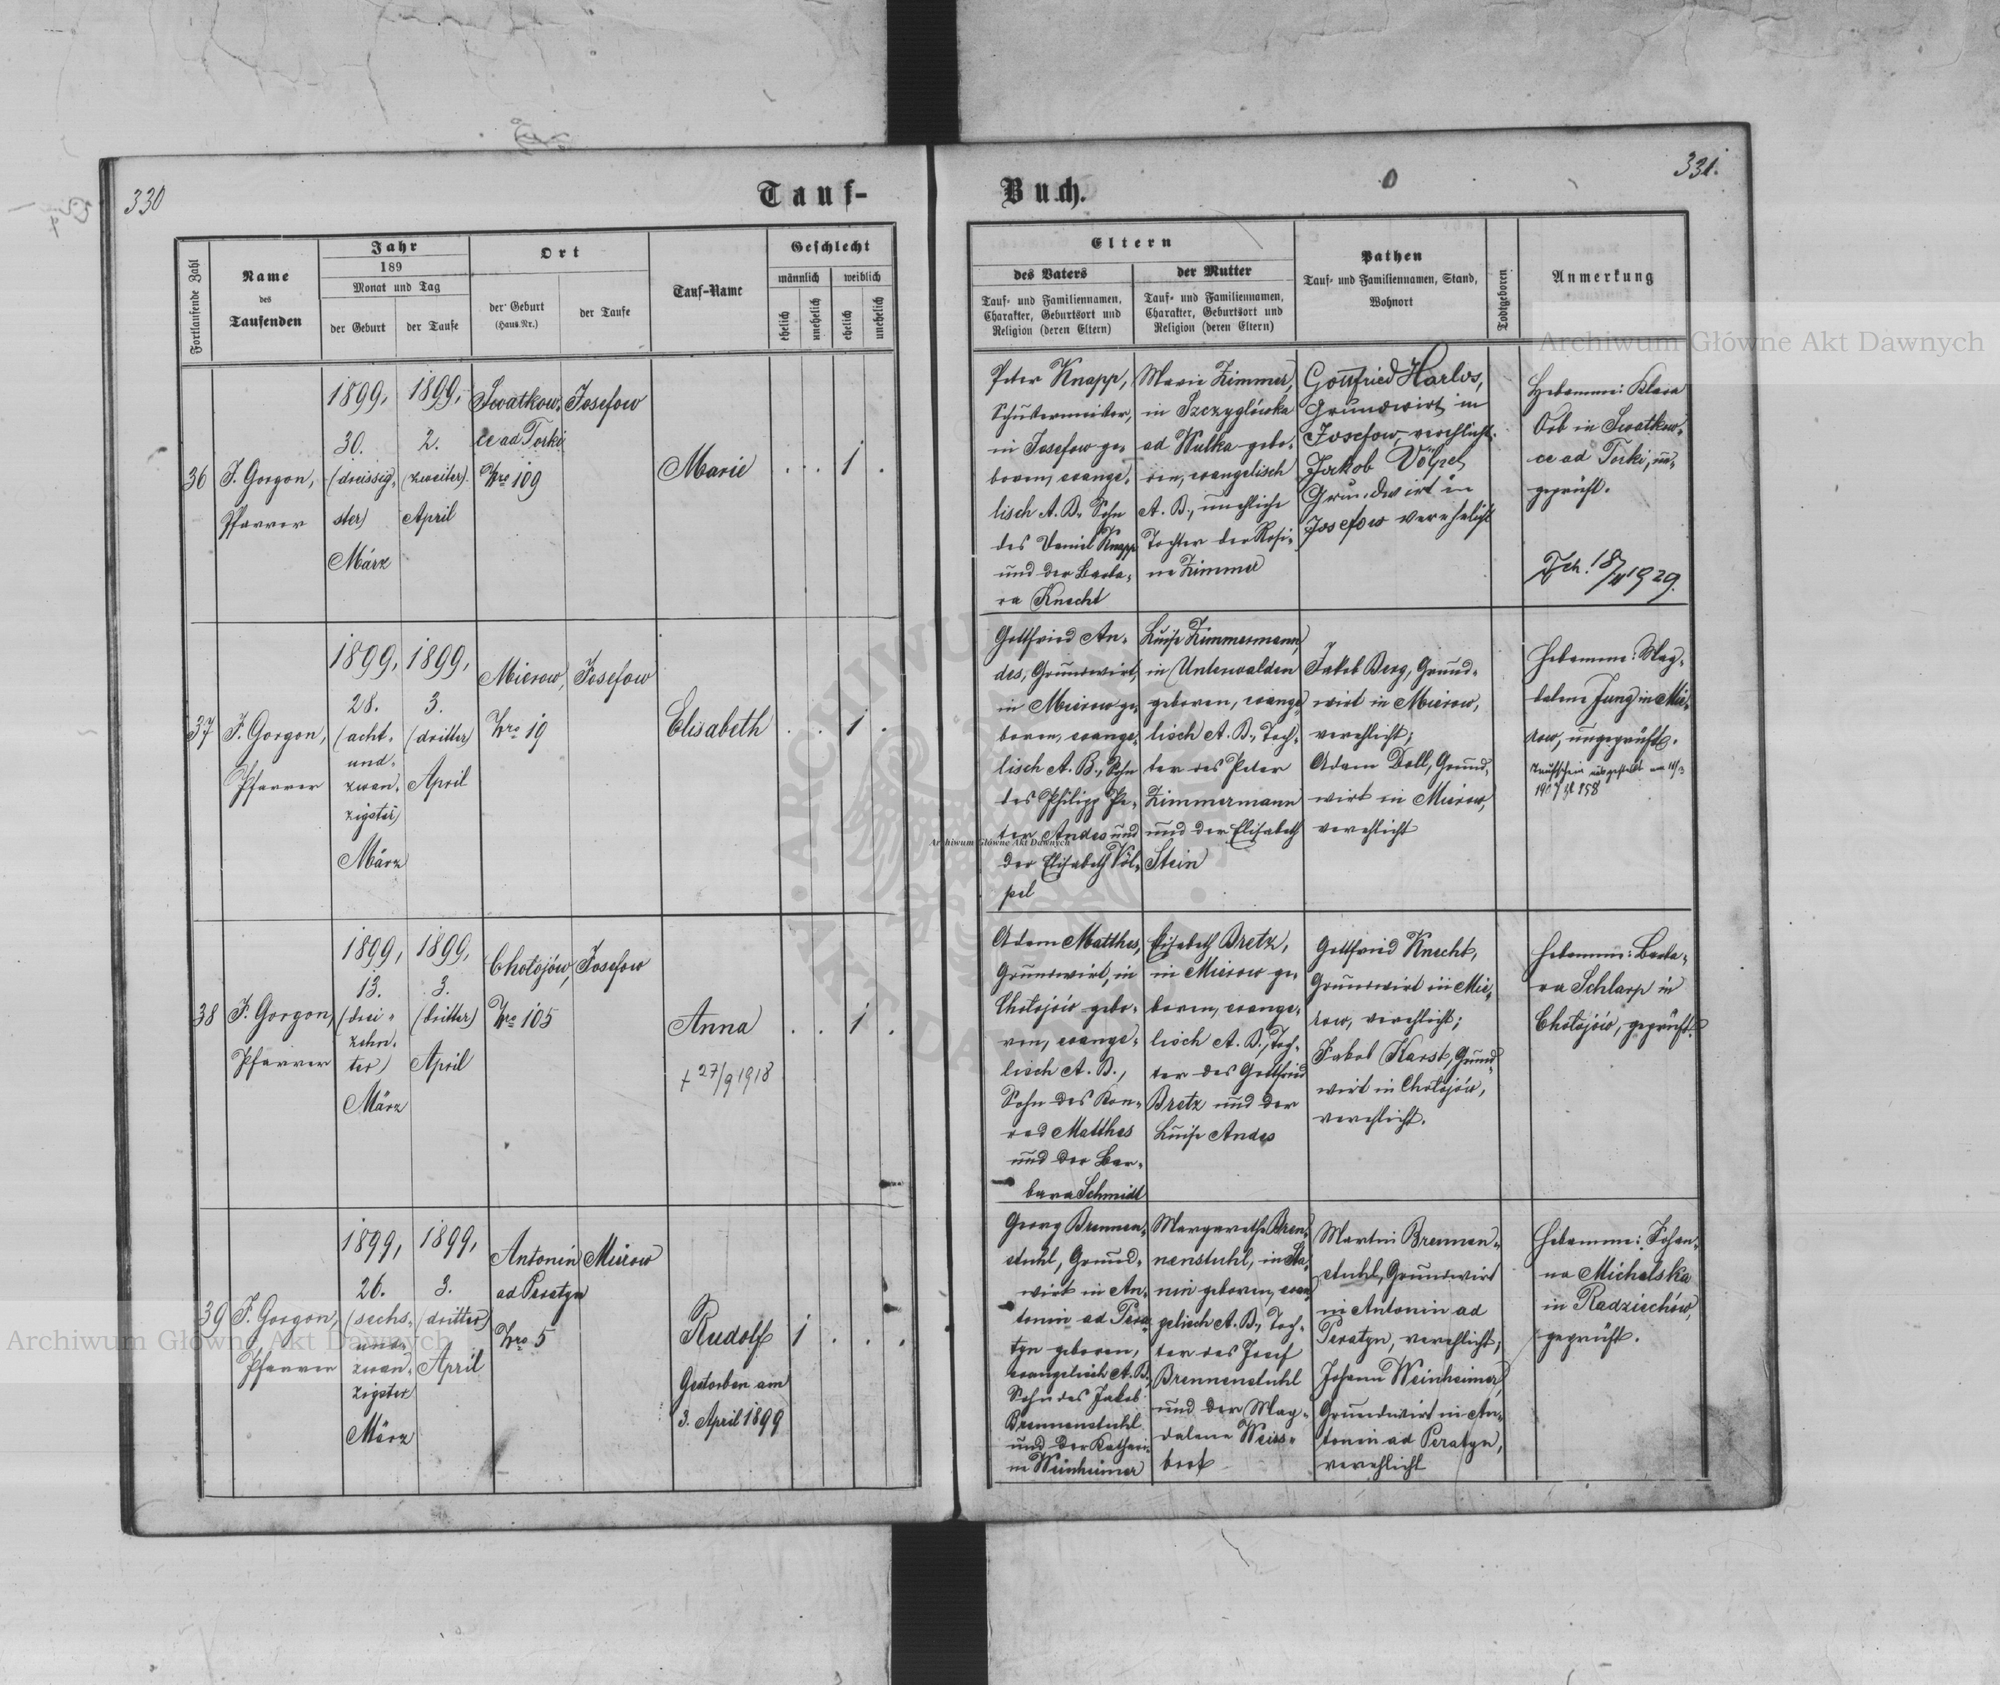 330
331.
Tauf-
Buch.
Fortlaufende Zahl
Name
des
Taufenden
Jahr
189
Monat und Tag
der Geburt
der Taufe
Ort
der Geburt
(Haus-Nr.)
der Taufe
Tauf-Name
Geschlecht
männlich
weiblich
ehelich
unehelich
ehelich
unehelich
Eltern
des Vaters
Tauf- und Familiennamen,
Charakter, Geburtsort und
Religion (deren Eltern)
der Mutter
Tauf- und Familiennamen,
Charakter, Geburtsort und
Religion (deren Eltern)
Pathen
Tauf- und Familiennamen, Stand,
Wohnort
Todtgeboren
Anmerkung
36
F. Gorgon,
Pfarrer
1899,
30.
(dreissig-
ster)
März
1899,
2.
(zweiter)
April
Swatkow-
ce ad Torki
Nro 109
Josefow
Marie
. . 1 .
Peter Knapp,
Schustermeister,
in Josefow ge-
boren, evange-
lisch A. B. Sohn
des Daniel Knapp
und der Barba-
ra Knecht
Marie Zimmer,
in Szczyglówka
ad Wulka gebo-
ren, evangelisch
A. B., uneheliche
Tochter der Rosi-
ne Zimmer
Gottfried Harlos,
Grundwirt in
Josefow, verehlicht.
Jakob Völpel
Grundwirt in
Josefow verehelicht
Hebamme: Klara
Orb in Swatkow-
ce ad Torki, un-
geprüft.
Tsch. 18/II 1929.
37
F. Gorgon,
Pfarrer
1899,
28.
(acht-
und-
zwan-
zigster)
März
1899,
3.
(dritter)
April
Mierow,
Nro 19
Josefow
Elisabeth
. . 1 .
Gottfried An-
des, Grundwirt,
in Mierow ge-
boren, evange-
lisch A. B., Sohn
des Philipp Pe-
ter Andes und
der Elisabeth Völ-
pel
Luise Zimmermann,
in Unterwalden
geboren, evange-
lisch A. B., Toch-
ter des Peter
Zimmermann
und der Elisabeth
Stein
Jakob Berg, Grund-
wirt in Mierow,
verehlicht;
Adam Doll, Grund-
wirt in Mierow,
verehlicht
Hebamme: Mag-
dalena Jung in Mie-
row, ungeprüft.
Taufschein ausgestellt am 11/3
1907 Zl 158
38
F. Gorgon,
Pfarrer
1899,
13.
(drei-
zehn-
ter)
März
1899,
3.
(dritter)
April
Chołojów,
Nro 105
Josefow
Anna
+ 27/9 1918
. . 1 .
Adam Matthes,
Grundwirt, in
Chołojów gebo-
ren, evange-
lisch A. B.,
Sohn des Kon-
rad Matthes
und der Bar-
bara Schmidt
Elisabeth Bretz,
in Mierow ge-
boren, evange-
lisch A. B., Toch-
ter des Gottfried
Bretz und der
Luise Andes
Gottfried Knecht,
Grundwirt in Mie-
row, verehlicht;
Jakob Karst, Grund-
wirt in Chołojów,
verehlicht.
Hebamme: Barba-
ra Schlarp in
Chołojów, geprüft.
39
F. Gorgon,
Pfarrer
1899,
26.
(sechs-
und-
zwan-
zigster
März
1899,
3.
(dritter)
April
Antonin
ad Peratyn
Nro 5
Mierow
Rudolf
Gestorben am
3. April 1899
1 . . .
Georg Brennen-
stuhl, Grund-
wirt in An-
tonin ad Pera-
tyn geboren,
evangelisch A. B.
Sohn des Jakob
Brennenstuhl
und der Kathari-
ne Weinheimer
Margarethe Bren-
nenstuhl, in Ha-
nin geboren, evan-
gelisch A. B., Toch-
ter des Josef
Brennenstuhl
und der Mag-
dalena Weiss-
brot
Martin Brennen-
stuhl, Grundwirt
in Antonin ad
Peratyn, verehlicht;
Johann Weinheimer,
Grundwirt in An-
tonin ad Peratyn,
verehlicht
Hebamme: Johan-
na Michalska
in Radziechów,
geprüft.
Archiwum Główne Akt Dawnych
Archiwum Główne Akt Dawnych
Archiwum Główne Akt Dawnych